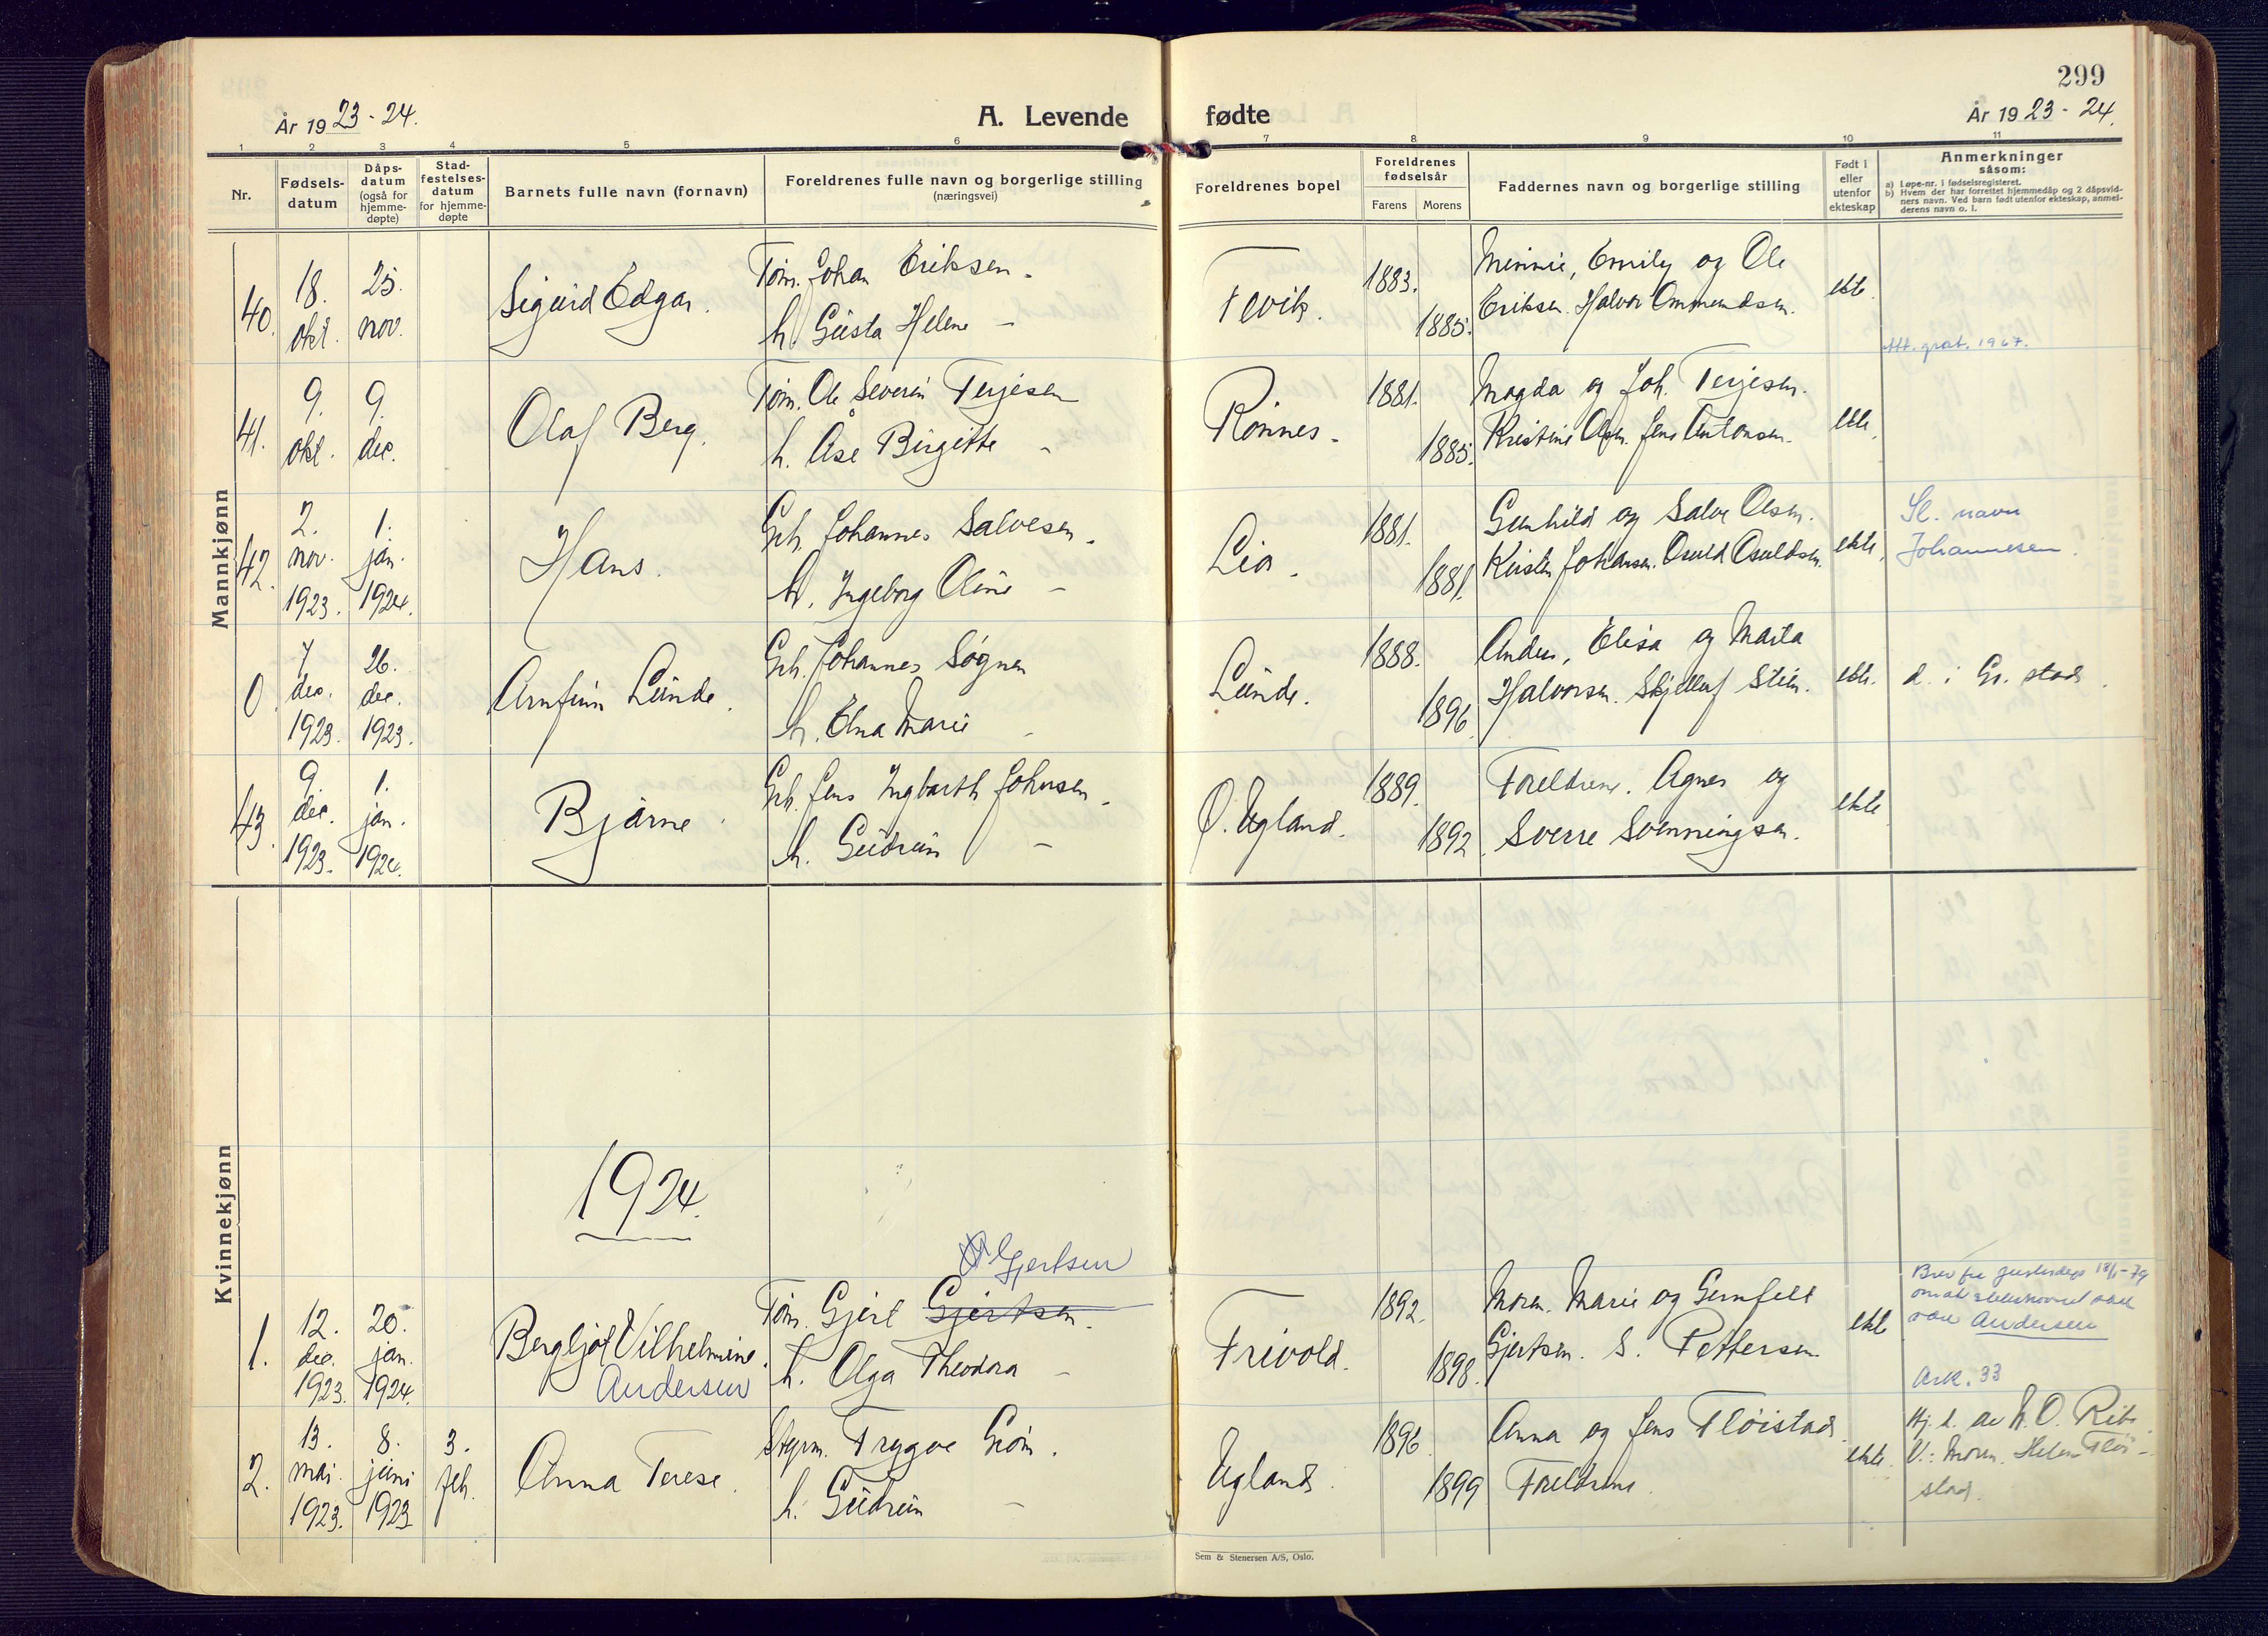 299
År 1923-24.
A. Levende fødte
År 1923-24.
1 2 3 4 5 6 7 8 9 10 11
Nr.
Fødsels-
datum
Dåps-
datum
(også for
hjemme-
døpte)
Stad-
festelses-
datum
for hjemme-
døpte
Barnets fulle navn (fornavn)
Foreldrenes fulle navn og borgerlige stilling
(næringsvei)
Foreldrenes bopel
Foreldrenes
fødselsår
Farens Morens
Faddernes navn og borgerlige stilling
Født i
eller
utenfor
ekteskap
Anmerkninger
såsom:
a) Løpe-nr. i fødselsregisteret.
b) Hvem der har forrettet hjemmedåp og 2 dåpsvid-
ners navn. Ved barn født utenfor ekteskap, anmel-
derens navn o. l.
Mannkjønn
40.
18.
okt.
25.
nov.
Sigurd Edgar.
Tøm. Johan Eriksen.
h. Gusta Helene -
Fevik.
1883.
1885.
Minnie, Emily og Ole
Eriksen. Halvor Ommundsen.
ekte.
Att. grat. 1967.
41.
9.
okt.
9.
dec.
Olaf Berg.
Tøm. Ole Severin Terjesen
h. Åse Birgitte -
Rønnes.
1881.
1885.
Magda og Joh. Terjesen.
Kristine Olsen. Jens Antonsen.
ekte.
42.
2.
nov.
1923.
1.
jan.
1924.
Hans.
Grb. Johannes Salvesen.
h. Ingeborg Oline -
Lia.
1881.
1881.
Gunhild og Salve Olsen.
Kirsten Johansen. Osuld Osuldsen.
ekte.
Sl. navn
Johannesen.
0
7
dec.
1923.
26.
dec.
1923.
Arnfinn Lunde.
Grb. Johannes Søgnen
h. Elna Marie -
Lunde.
1888.
1896.
Anders, Elisa og Marta
Halvorsen. Skjelluf Stien.
ekte.
d. i Gr. stad.
43.
9.
dec.
1923.
1.
jan.
1924.
Bjarne
Grb. Jens Ingbarth Johnsen.
h. Gudrun -
Ø. Ugland.
1889.
1892.
Foreldrene. Agnes og
Sverre Svenningsen.
ekte
Kvinnekjønn
1924.
Gjertsen
1.
12.
dec.
1923.
20.
jan.
1924.
Bergljot Vilhelmine.
Andersen
Tøm. Gjert Gjertsen.
h. Olga Theodora -
Frivold.
1892.
1898.
Moren. Marie og Gunfeld
Gjertsen. S. Pettersen
ekte
Brev fra 18/1-79
om at slektsnavnet skal
være Andersen
Ark. 33
2.
13.
mai.
1923.
8.
juni
1923
3.
feb.
Anna Terese.
Styrm. Trygve Grøm.
h. Gudrun -
Ugland.
1896.
1899
Anna og Jens Fløistad.
Foreldrene.
ekte.
Hj. d. av N. O. Ribe
V.: Moren. Helene Fløi-
stad.
Sem & Stenersen A/S, Oslo.